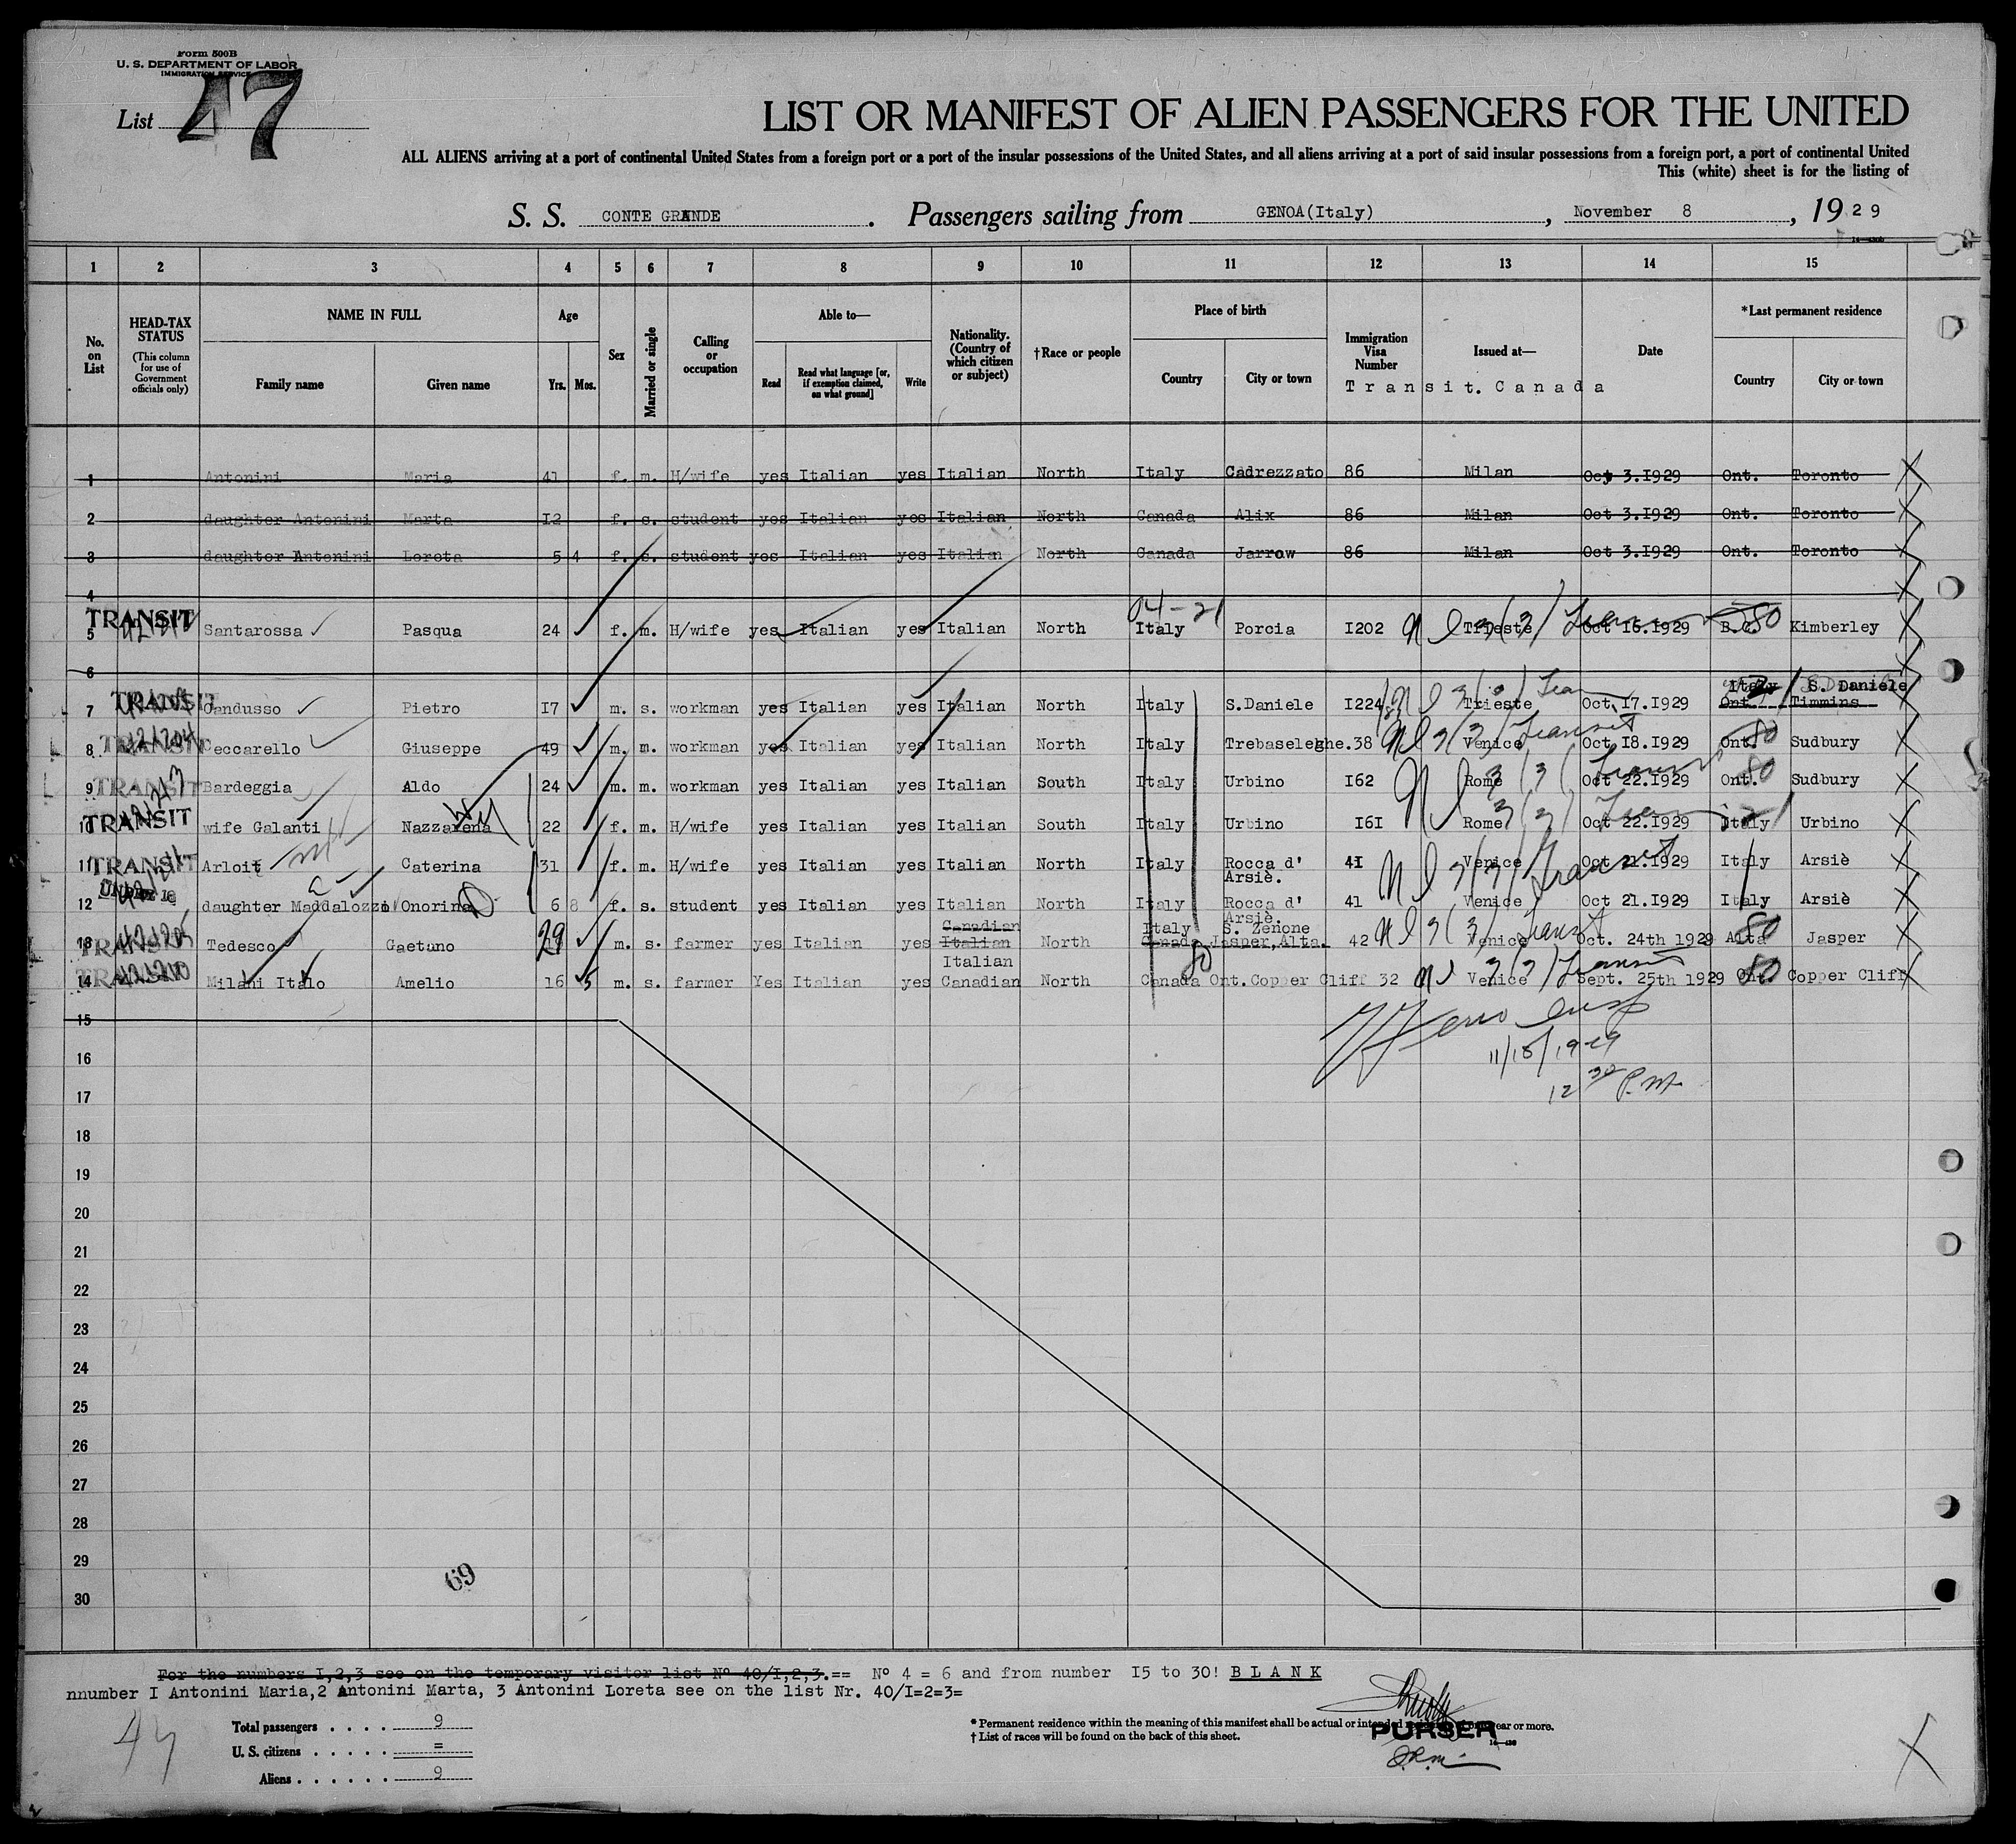 Form 500B
U. S. DEPARTMENT OF LABOR
IMMIGRATION SERVICE
List 47
LIST OR MANIFEST OF ALIEN PASSENGERS FOR THE UNITED
ALL ALIENS arriving at a port of continental United States from a foreign port or a port of the insular possessions of the United States, and all aliens arriving at a port of said insular possessions from a foreign port, a port of continental United
This (white) sheet is for the listing of
S. S. CONTE GRANDE. Passengers sailing from GENOA(Italy), November 8, 1929
1 2 3 4 5 6 7 8 9 10 11 12 13 14 15
No. on List
HEAD-TAX STATUS
(This column for use of Government officials only)
NAME IN FULL
Family name Given name
Age
Yrs. Mos.
Sex
Married or single
Calling or occupation
Able to—
Read
Read what language [or, if exemption claimed, on what ground]
Write
Nationality. (Country of which citizen or subject)
†Race or people
Place of birth
Country City or town
Immigration Visa Number
Issued at—
Date
Transit. Canada
*Last permanent residence
Country City or town
1 Antonini Maria 41 f. m. H/wife yes Italian yes Italian North Italy Cadrezzato 86 Milan Oct 3.I929 Ont. Toronto
2 daughter Antonini Marta I2 f. s. student yes Italian yes Italian North Canada Alix 86 Milan Oct 3.I929 Ont. Toronto
3 daughter Antonini Loreta 5 4 f. s. student yes Italian yes Italian North Canada Jarrow 86 Milan Oct 3.I929 Ont. Toronto
4
04-21
TRANSIT
5 Santarossa Pasqua 24 f. m. H/wife yes Italian yes Italian North Italy Porcia I202 Trieste Oct 16.I929 B.C. 80 Kimberley
6
TRANSIT
Italy S. Daniele
7 Candusso Pietro I7 m. s. workman yes Italian yes Italian North Italy S.Daniele I224 Trieste Oct.I7.I929 Ont. Timmins
TRANSIT
8 Peccarello Giuseppe 49 m. m. workman yes Italian yes Italian North Italy Trebaseleghe.38 Venice Transit Oct I8.I929 Ont. 80 Sudbury
TRANSIT
9 Bardeggia Aldo 24 m. m. workman yes Italian yes Italian South Italy Urbino I62 Rome Oct 22.I929 Ont. 80 Sudbury
TRANSIT
10 wife Galanti Nazzarena 22 f. m. H/wife yes Italian yes Italian South Italy Urbino I6I Rome Oct 22.I929 Italy Urbino
TRANSIT
11 Arloit Caterina 31 f. m. H/wife yes Italian yes Italian North Italy Rocca d' Arsiè. 4I Venice Transit Oct 21.I929 Italy Arsiè
UNDER 16
12 daughter Maddalozzo Onorina 6 8 f. s. student yes Italian yes Italian North Italy Rocca d' Arsiè. 41 Venice Oct 21.I929 Italy Arsiè
TRANSIT
Canadian Italy S. Zenone
13 Tedesco Gaetano 29 m. s. farmer yes Italian yes Italian North Canada Jasper,Alta. 42 Venice Transit Oct. 24th 1929 Alta 80 Jasper
Italian
80
TRANSIT
14 Milani Italo Amelio 16 5 m. s. farmer Yes Italian yes Canadian North Canada Ont.Copper Cliff 32 Venice Transit Sept. 25th 1929 Ont. 80 Copper Cliff
15
11/18/1929
16
12 30 P.M.
17
18
19
20
21
22
23
24
25
26
27
28
29
69
30
For the numbers I,2,3 see on the temporary visitor list Nº 40/I,2,3.== Nº 4 = 6 and from number I5 to 30! BLANK
nnumber I Antonini Maria,2 Antonini Marta, 3 Antonini Loreta see on the list Nr. 40/I=2=3=
47
Total passengers . . . . 9
U. S. citizens . . . . . =
Aliens . . . . . . 9
* Permanent residence within the meaning of this manifest shall be actual or intended residence of one year or more.
† List of races will be found on the back of this sheet.
PURSER